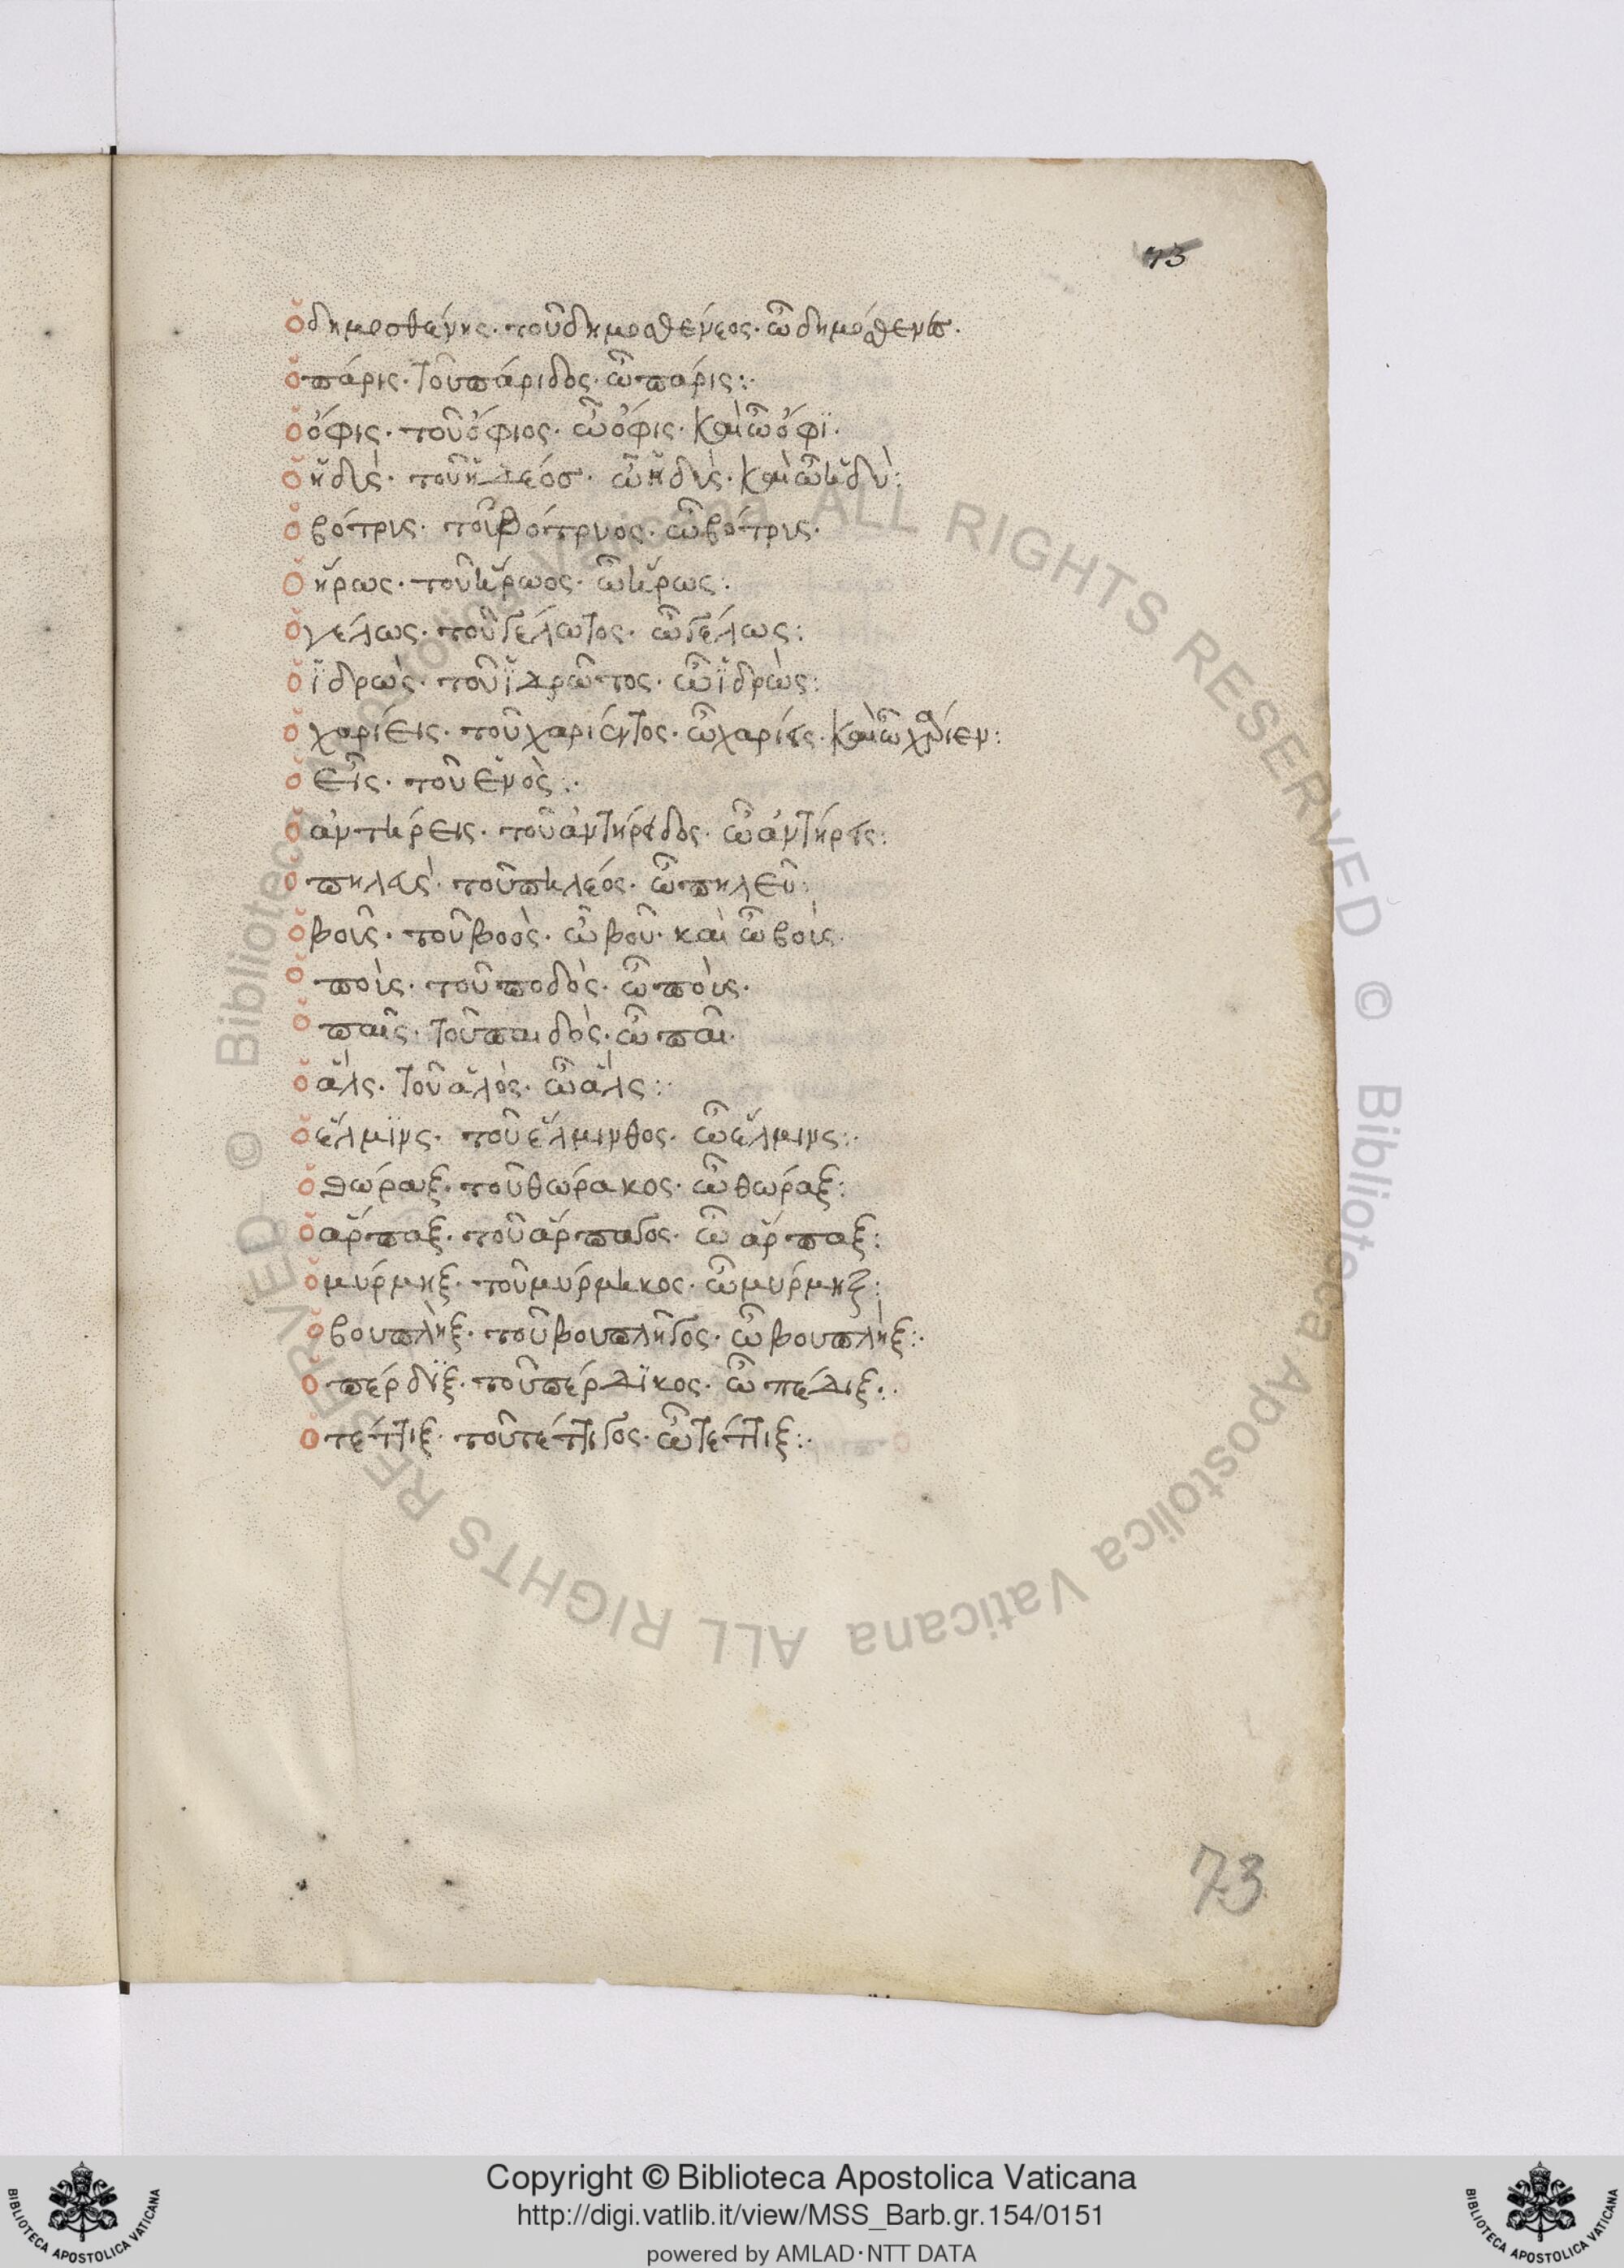 73
ὁ δημοσθένης· τοῦ δημοσθένεος· ὦ δημόσθενες·
ὁ πάρις· τοῦ πάριδος· ὦ πάρις:·
ὁ ὄφις· τοῦ ὄφιος· ὦ ὄφις· καὶ ὦ ὄφϊ·
ὁ ἡδὺς· τοῦ ἡδέος· ὦ ἡδὺς· καὶ ὦ ἡδὺ:
ὁ βότρυς· τοῦ βότρυος· ὦ βότρυς·
ὁ ἥρως· τοῦ ἥρωος· ὦ ἥρως:
ὁ γέλως· τοῦ γέλωτος· ὦ γέλως:
ὁ ἱδρὼς· τοῦ ἱδρῶτος· ὦ ἱδρὼς:
ὁ χαρίεις· τοῦ χαρίεντος· ὦ χαρίεις· καὶ ὦ χαρίεν:
ὁ εἷς· τοῦ ἑνὸς:·
ὁ ἀντήρεις· τοῦ ἀντήρειδος· ὦ ἀντήρεις:
ὁ πηλεὺς· τοῦ πηλέος· ὦ πηλεῦ:
ὁ βοῦς· τοῦ βοὸς· ὦ βοῦ· καὶ ὦ βοὺς·
ὁ ποὺς· τοῦ ποδὸς· ὦ ποὺς·
ὁ παῖς· τοῦ παιδὸς· ὦ παῖ·
ὁ ἅλς· τοῦ ἁλὸς· ὦ ἅλς:·
ὁ ἕλμϊνς· τοῦ ἕλμινθος· ὦ ἕλμινς:·
ὁ θώραξ· τοῦ θώρακος· ὦ θώραξ:
ὁ ἅρπαξ· τοῦ ἅρπαγος· ὦ ἅρπαξ:
ὁ μύρμηξ· τοῦ μύρμηκος· ὦ μύρμηξ:
ὁ βουπλὴξ· τοῦ βουπλῆγος· ὦ βουπλὴξ:·
ὁ πέρδϊξ· τοῦ πέρδϊκος· ὦ πέδιξ:·
ὁ τέττιξ· τοῦ τέττιγος· ὦ τέττιξ:·
73
© Biblioteca Apostolica Vaticana ALL RIGHTS RESERVED © Biblioteca Apostolica Vaticana ALL RIGHTS RESERVED
Copyright © Biblioteca Apostolica Vaticana
http://digi.vatlib.it/view/MSS_Barb.gr.154/0151
powered by AMLAD·NTT DATA
BIBLIOTECA APOSTOLICA VATICANA
BIBLIOTECA APOSTOLICA VATICANA